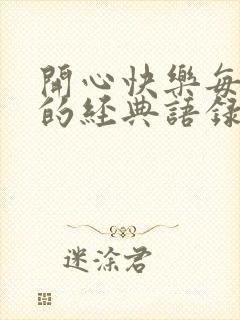 開心快樂每
的經典語錄
迷涂君